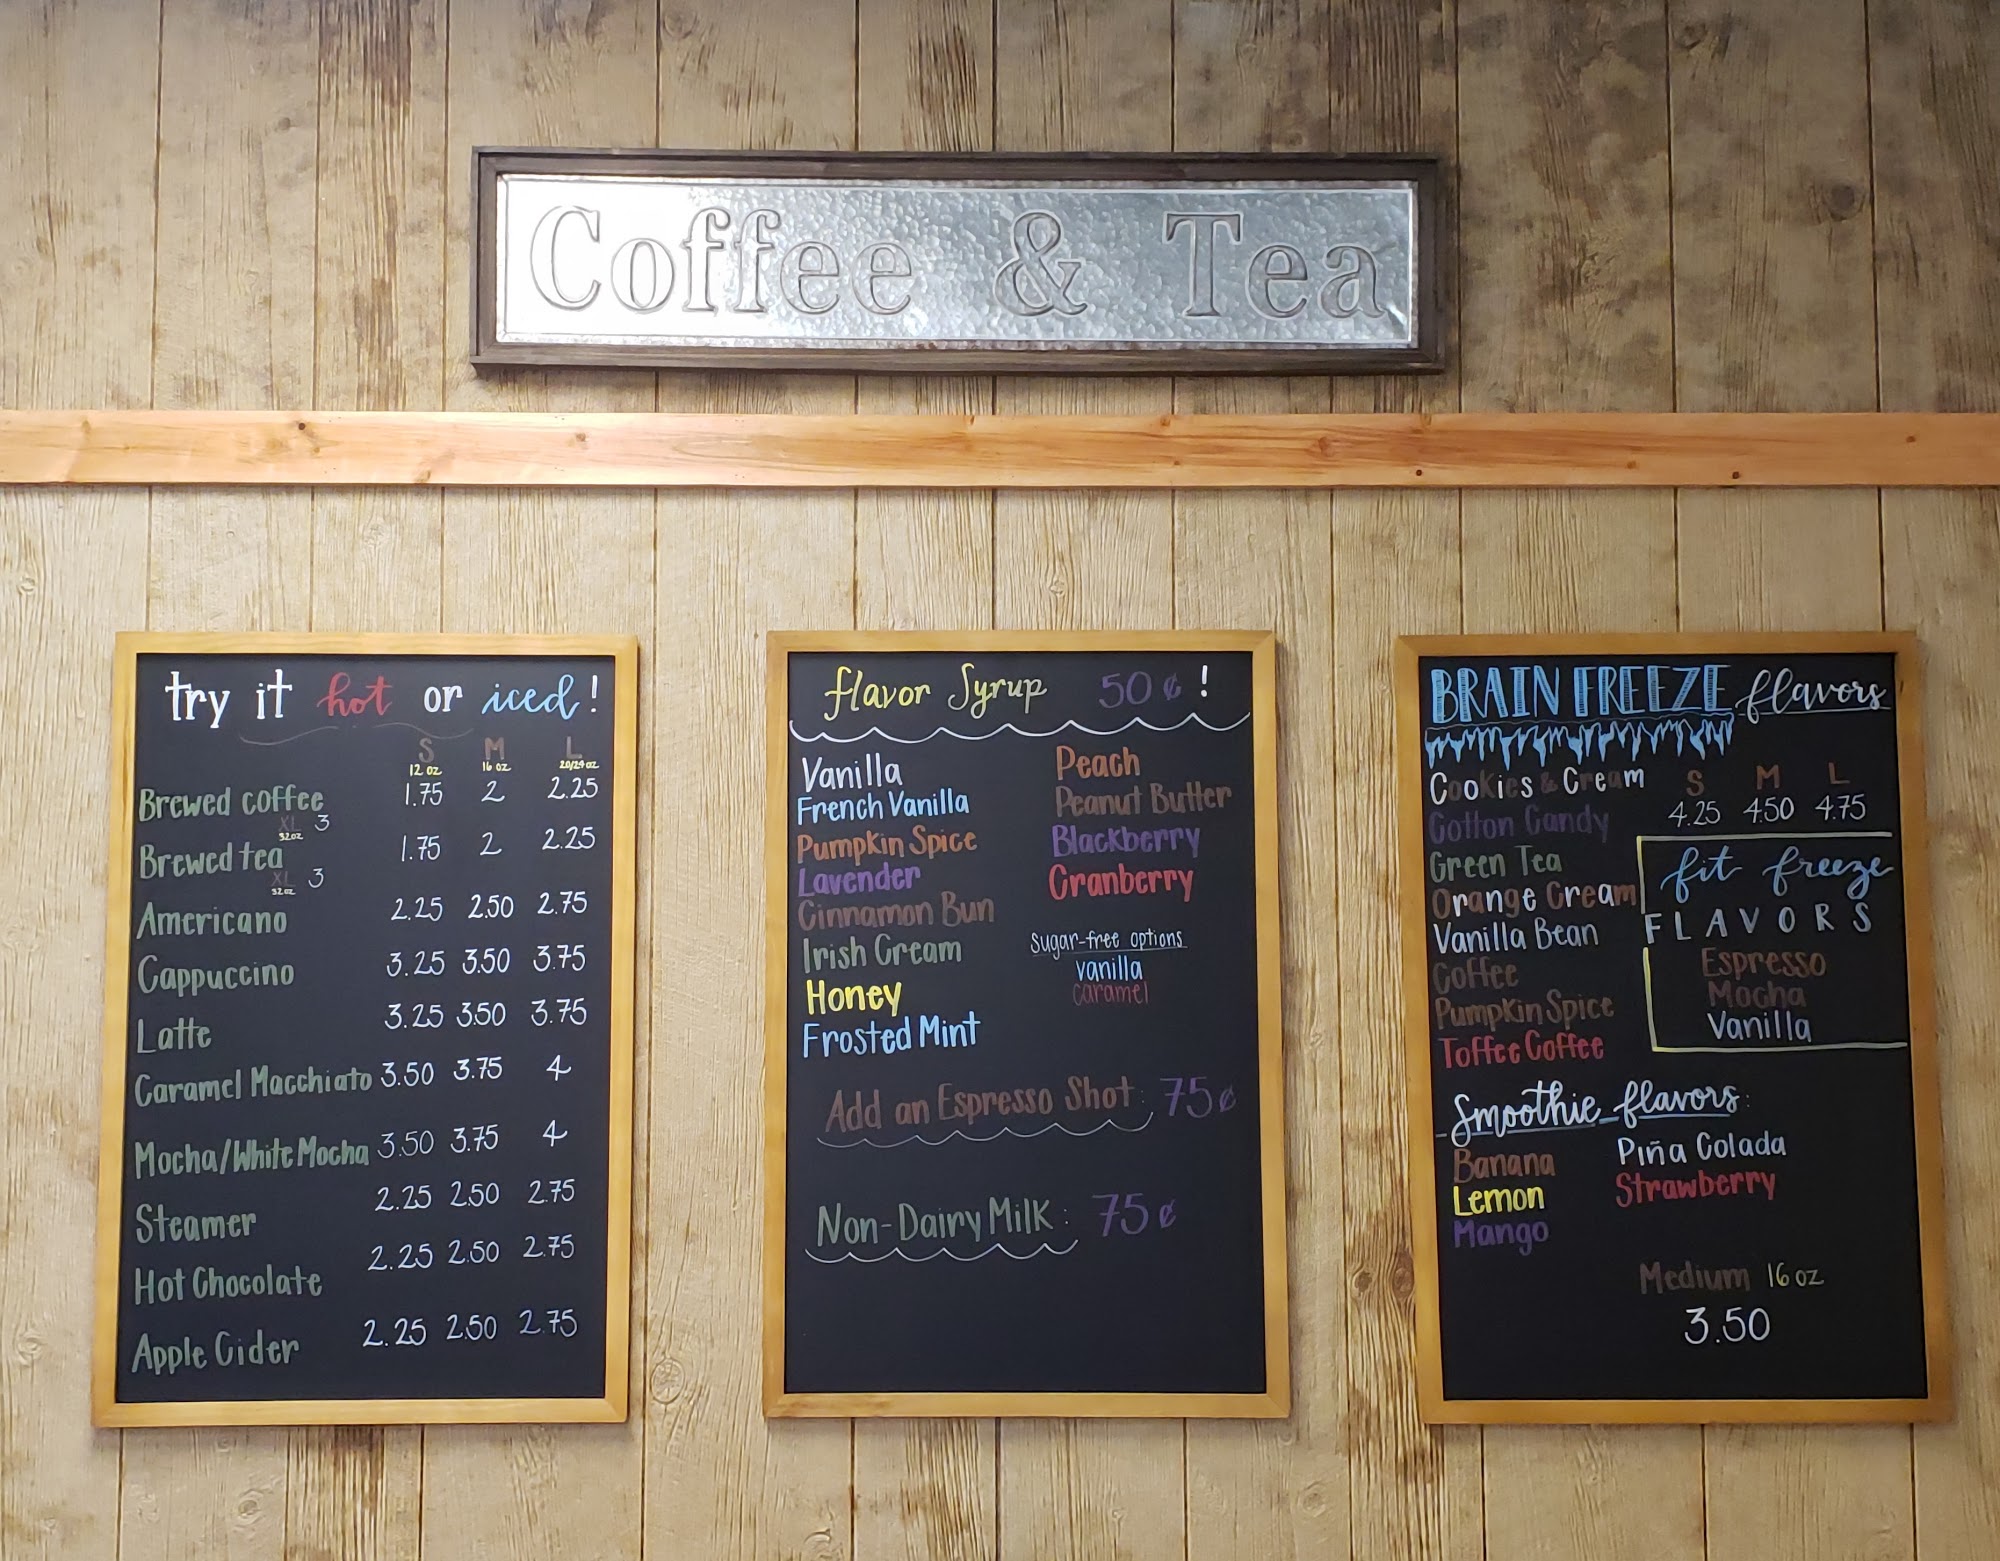 Coffee & Tea
try it hot or iced!
S M L
12 oz 16 oz 20/24 oz
Brewed coffee 1.75 2 2.25
XL 3
32oz
Brewed tea 1.75 2 2.25
XL 3
32oz
Americano 2.25 2.50 2.75
Cappuccino 3.25 3.50 3.75
Latte 3.25 3.50 3.75
Caramel Macchiato 3.50 3.75 4
Mocha/White Mocha 3.50 3.75 4
Steamer 2.25 2.50 2.75
Hot Chocolate 2.25 2.50 2.75
Apple Cider 2.25 2.50 2.75
flavor Syrup 50¢!
Vanilla
French Vanilla
Pumpkin Spice
Lavender
Cinnamon Bun
Irish Cream
Honey
Frosted Mint
Peach
Peanut Butter
Blackberry
Cranberry
Sugar-free options
vanilla
caramel
Add an Espresso Shot: 75¢
Non-Dairy Milk: 75¢
BRAIN FREEZE flavors
Cookies & Cream
Cotton Candy
Green Tea
Orange Cream
Vanilla Bean
Coffee
Pumpkin Spice
Toffee Coffee
S M L
4.25 4.50 4.75
fit freeze
FLAVORS
Espresso
Mocha
Vanilla
Smoothie flavors:
Banana
Lemon
Mango
Piña Colada
Strawberry
Medium 16 oz
3.50